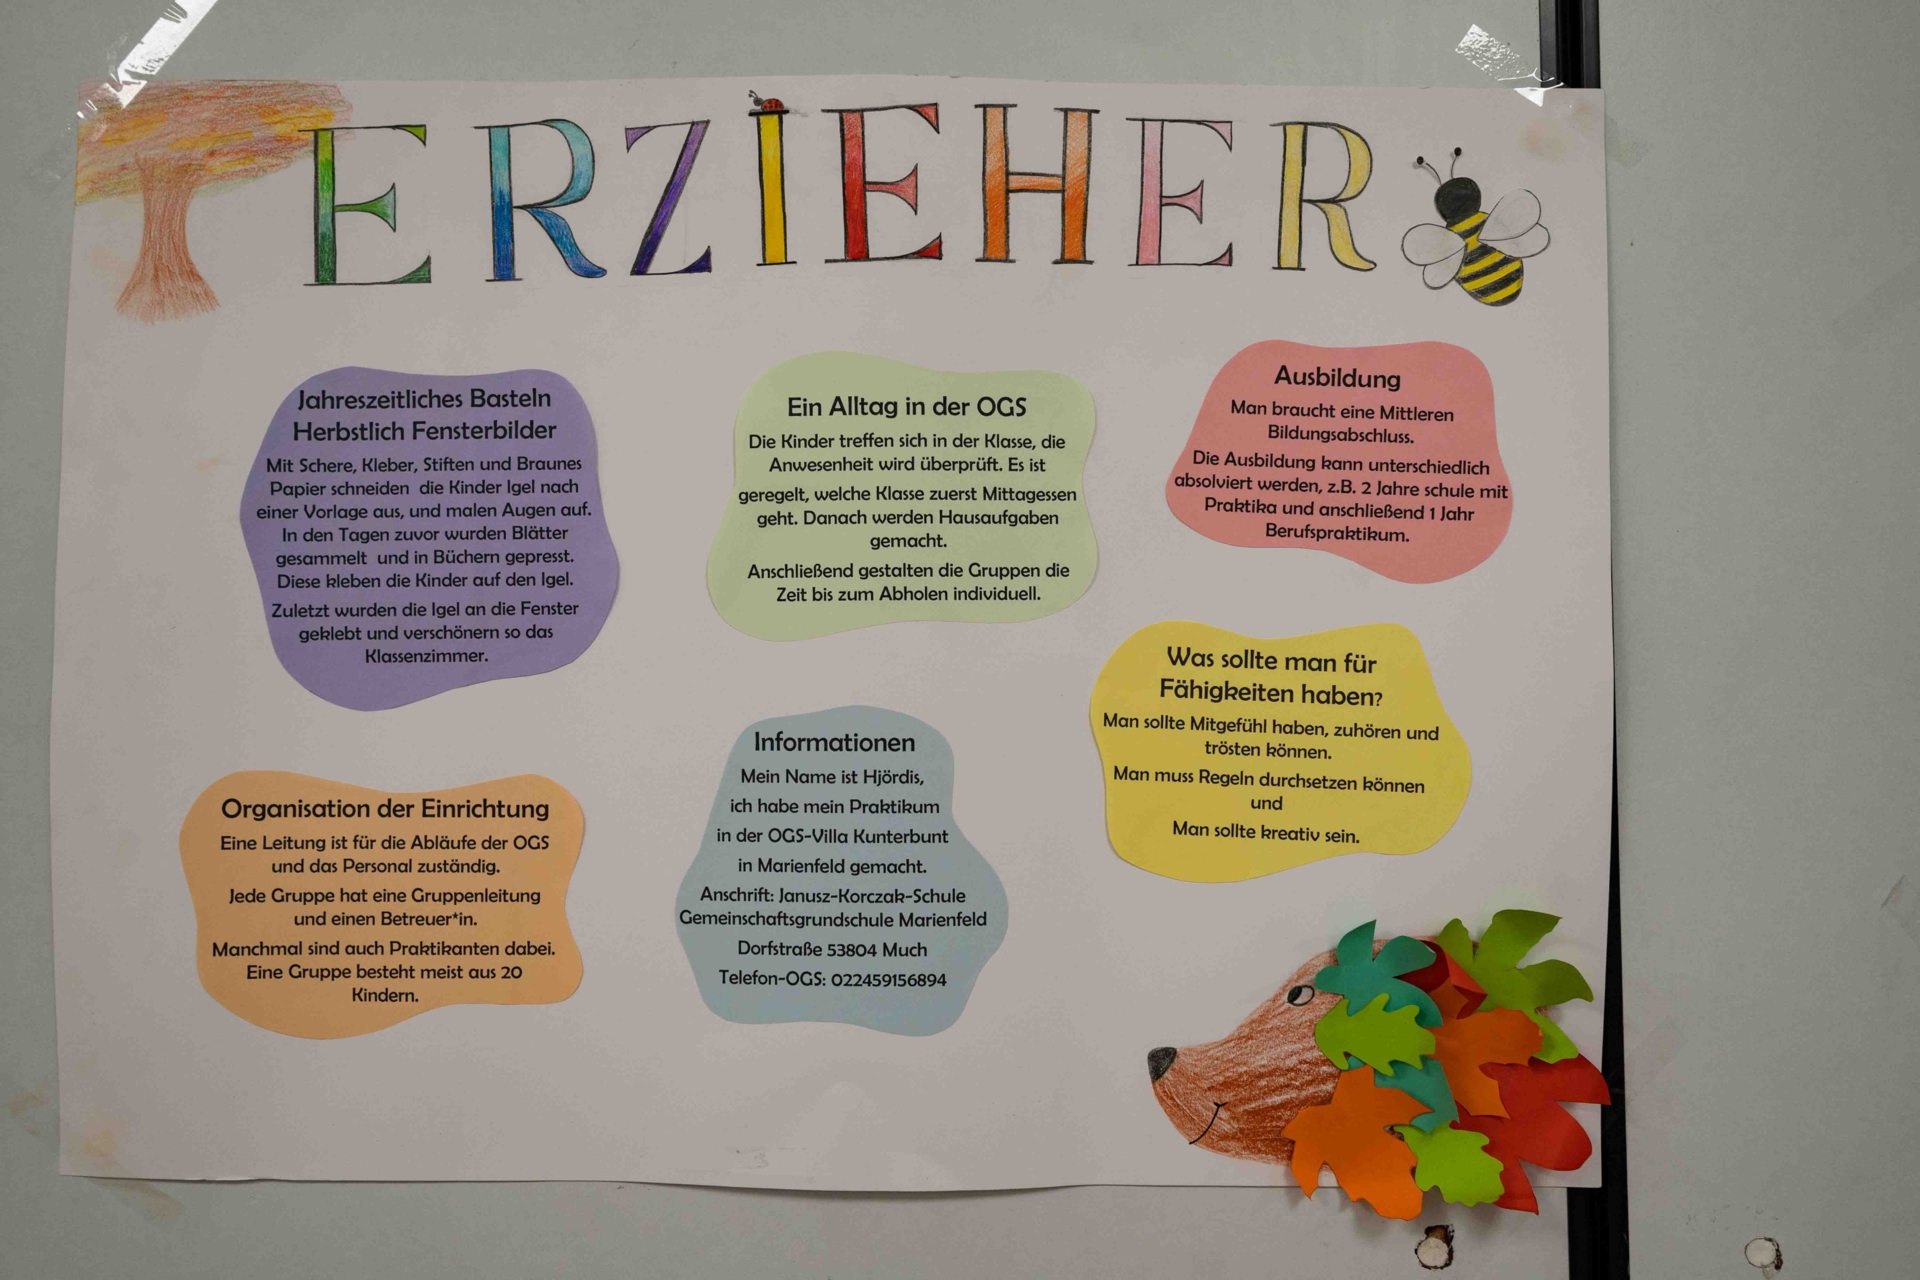 ERZIEHER
Jahreszeitliches Basteln
Herbstlich Fensterbilder
Mit Schere, Kleber, Stiften und Braunes
Papier schneiden die Kinder Igel nach
einer Vorlage aus, und malen Augen auf.
In den Tagen zuvor wurden Blätter
gesammelt und in Büchern gepresst.
Diese kleben die Kinder auf den Igel.
Zuletzt wurden die Igel an die Fenster
geklebt und verschönern so das
Klassenzimmer.
Ein Alltag in der OGS
Die Kinder treffen sich in der Klasse, die
Anwesenheit wird überprüft. Es ist
geregelt, welche Klasse zuerst Mittagessen
geht. Danach werden Hausaufgaben
gemacht.
Anschließend gestalten die Gruppen die
Zeit bis zum Abholen individuell.
Ausbildung
Man braucht eine Mittleren
Bildungsabschluss.
Die Ausbildung kann unterschiedlich
absolviert werden, z.B. 2 Jahre schule mit
Praktika und anschließend 1 Jahr
Berufspraktikum.
Was sollte man für
Fähigkeiten haben?
Man sollte Mitgefühl haben, zuhören und
trösten können.
Man muss Regeln durchsetzen können
und
Man sollte kreativ sein.
Organisation der Einrichtung
Eine Leitung ist für die Abläufe der OGS
und das Personal zuständig.
Jede Gruppe hat eine Gruppenleitung
und einen Betreuer*in.
Manchmal sind auch Praktikanten dabei.
Eine Gruppe besteht meist aus 20
Kindern.
Informationen
Mein Name ist Hjördis,
ich habe mein Praktikum
in der OGS-Villa Kunterbunt
in Marienfeld gemacht.
Anschrift: Janusz-Korczak-Schule
Gemeinschaftsgrundschule Marienfeld
Dorfstraße 53804 Much
Telefon-OGS: 022459156894